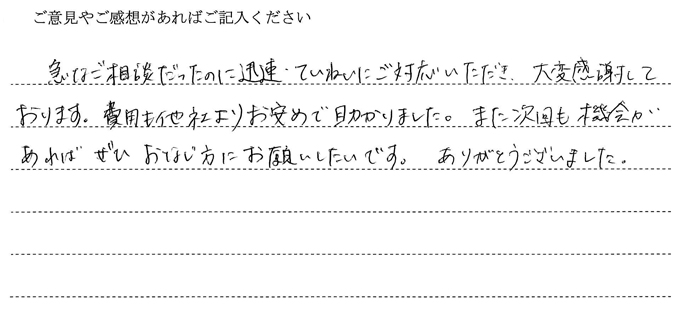 ご意見やご感想があればご記入ください
急なご相談だったのに迅速・ていねいにご対応いただき、大変感謝して
おります。費用も他社よりお安めで助かりました。また次回も機会が
あれば ぜひ おなじ方にお願いしたいです。 ありがとうございました。